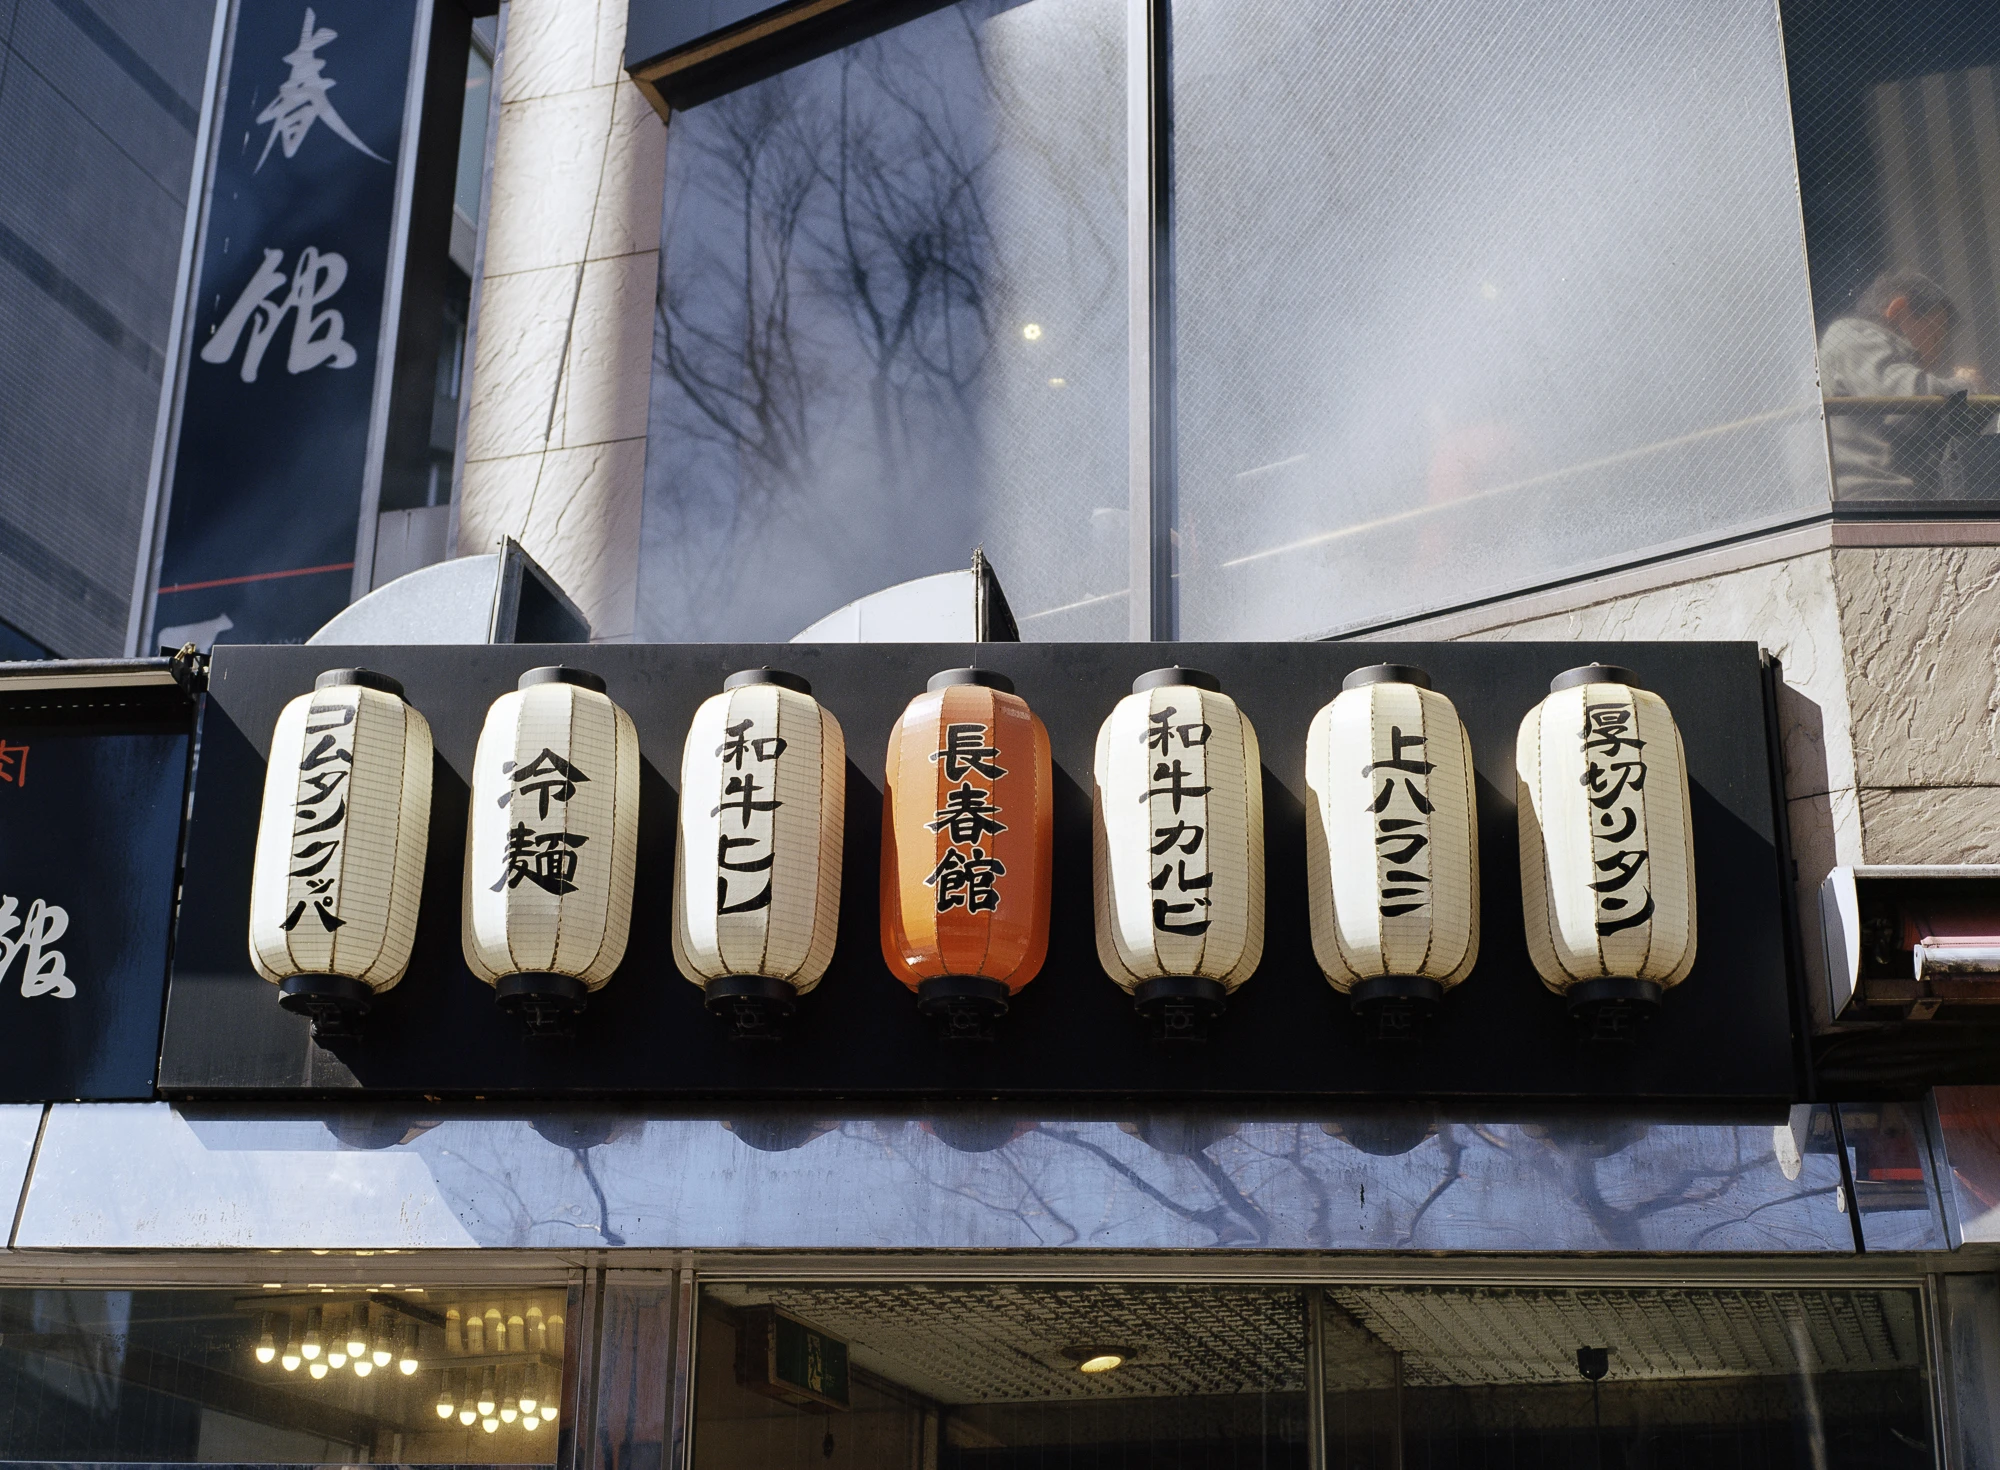 春館
肉
館
コムタンクッパ
冷麺
和牛ヒレ
長春館
和牛カルビ
上ハラミ
厚切りタン